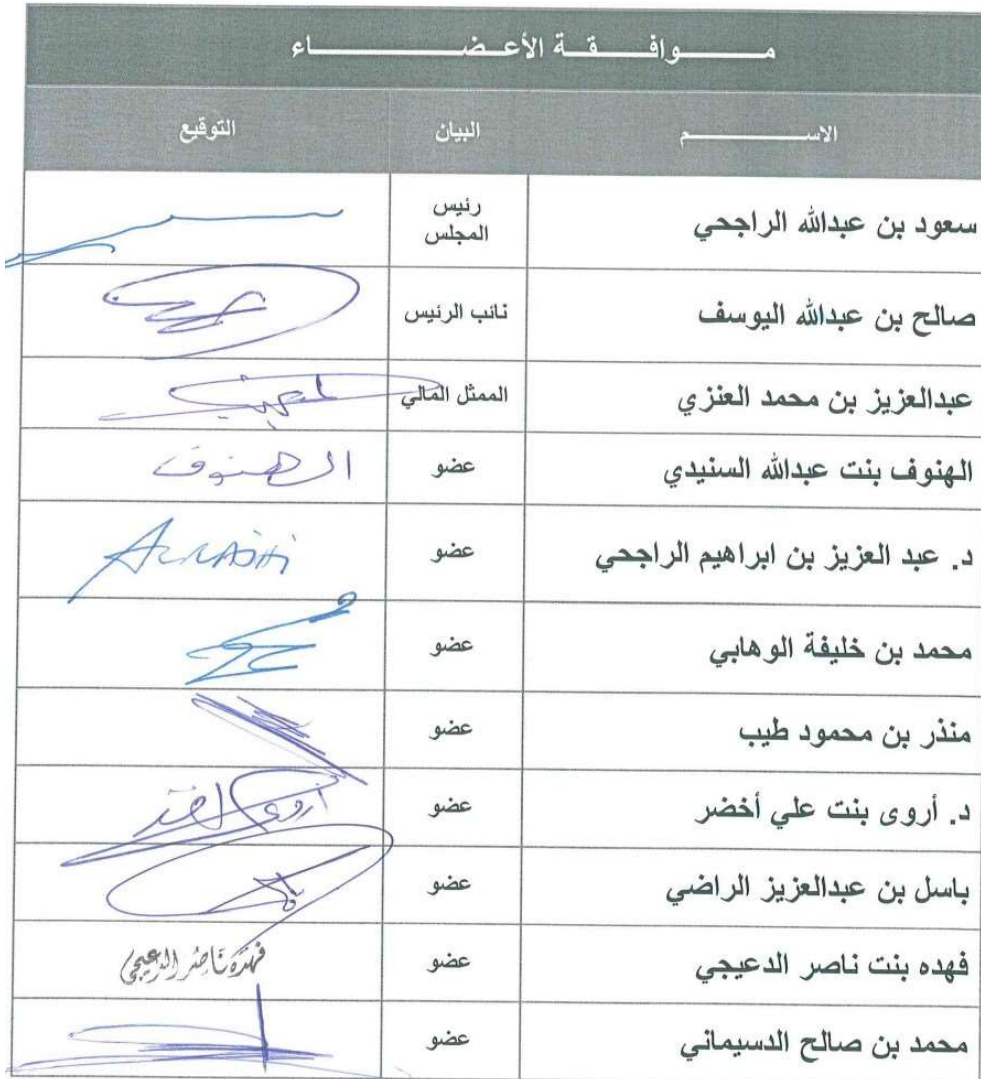 موافقة الأعضاء
الاسم البيان التوقيع
سعود بن عبدالله الراجحي رئيس المجلس
صالح بن عبدالله اليوسف نائب الرئيس
عبدالعزيز بن محمد العنزي الممثل المالي
الهنوف بنت عبدالله السنيدي عضو الهنوف
د. عبد العزيز بن ابراهيم الراجحي عضو
محمد بن خليفة الوهابي عضو
منذر بن محمود طيب عضو
د. أروى بنت علي أخضر عضو
باسل بن عبدالعزيز الراضي عضو
فهده بنت ناصر الدعيجي عضو فهدة ناصر الدعيجي
محمد بن صالح الدسيماني عضو